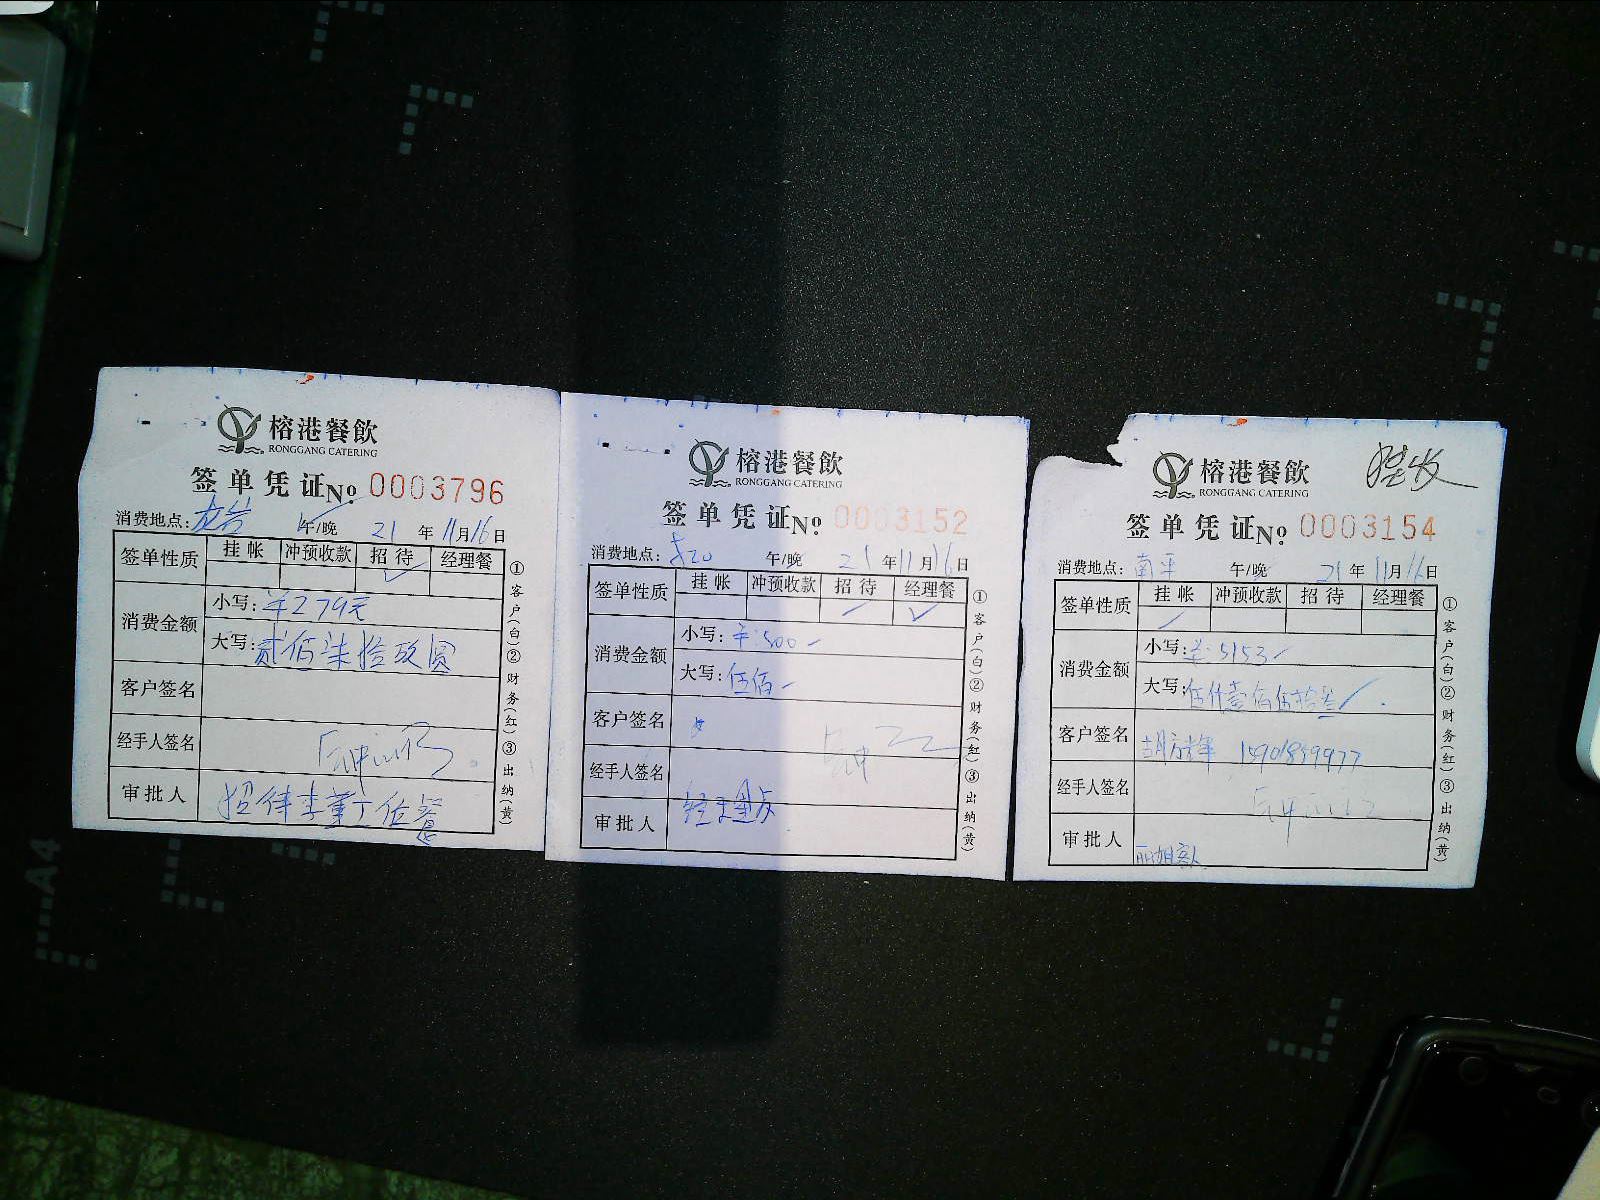 榕港餐飲
RONGGANG CATERING
签单凭证No. 0003796
消费地点: 午/晚 21年11月16日
签单性质 挂帐 冲预收款 招待 经理餐
消费金额 小写: ¥279元
大写: 贰佰柒拾玖圆
客户签名
经手人签名
审批人
①客户(白)②财务(红)③出纳(黄)
榕港餐飲
RONGGANG CATERING
签单凭证No. 0003152
消费地点: 午/晚 21年11月16日
签单性质 挂帐 冲预收款 招待 经理餐
消费金额 小写: ¥:500
大写: 伍佰
客户签名
经手人签名
审批人
①客户(白)②财务(红)③出纳(黄)
挂收
榕港餐飲
RONGGANG CATERING
签单凭证No. 0003154
消费地点: 南平 午/晚 21年11月16日
签单性质 挂帐 冲预收款 招待 经理餐
消费金额 小写: ¥:5153
大写: 伍仟壹佰伍拾叁
客户签名
经手人签名
审批人
①客户(白)②财务(红)③出纳(黄)
A4